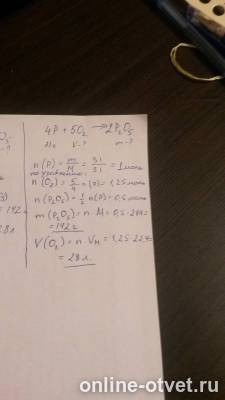 4P + 5O₂ → 2P₂O₅
V-? m-?
n(P) = m/M = 31/31 = 1 моль
по уравнению:
n(O₂) = 5/4 n(P) = 1,25 моль
n(P₂O₅) = 1/2 n(P) = 0,5 моль
m(P₂O₅) = n · M = 0,5 ·
= 142 г
V(O₂) = n · Vм = 1,25 · 22,4 =
= 28 л.
online-otvet.ru